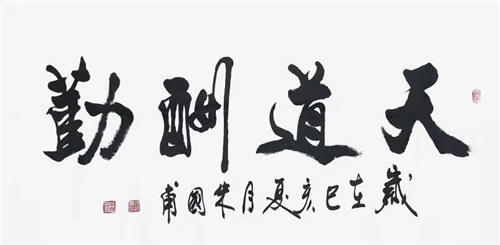 天道酬勤
歲在己亥夏月朱國甫